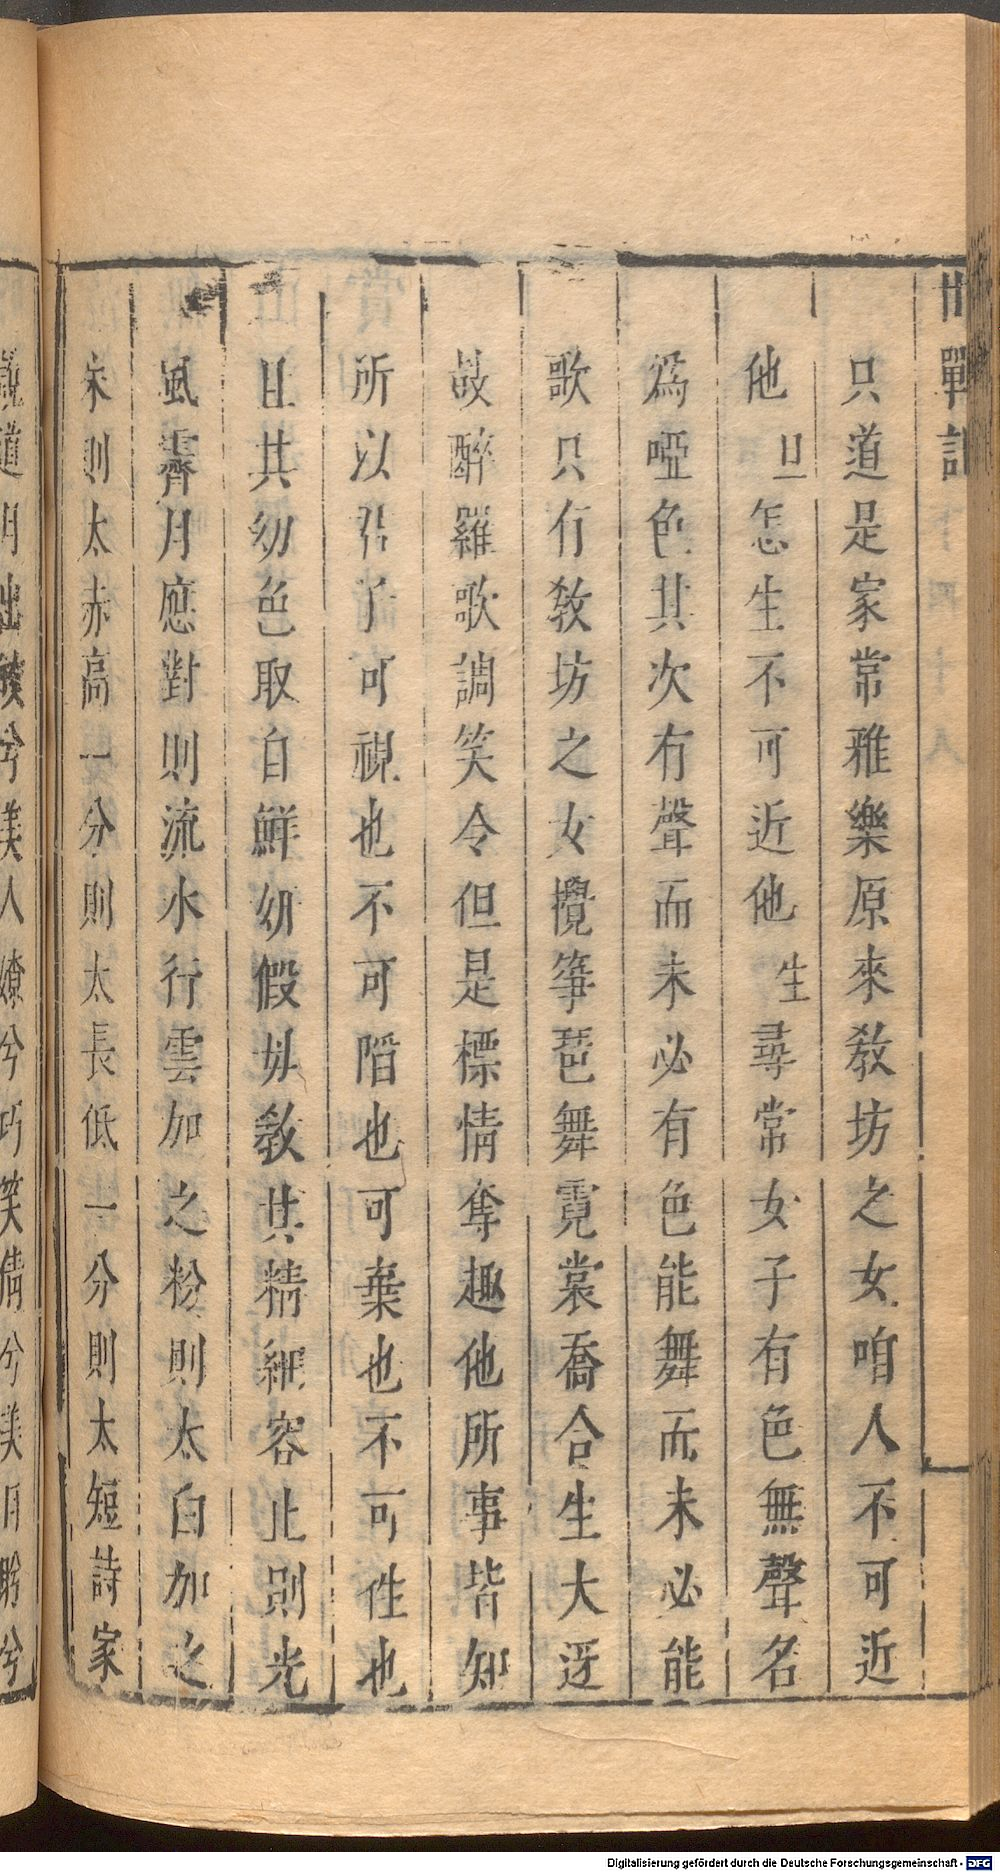 邯鄲記
只道是家常雅樂原來教坊之女咱人不可近
他旦怎生不可近他生尋常女子有色無聲名
為啞色其次有聲而未必有色能舞而未必能
歌只有教坊之女攪箏琶舞霓裳喬合生大迓
鼓醉羅歌調笑令但是標情奪趣他所事皆知
所以君子可視也不可陷也可棄也不可往也
且其幼色取自鮮妍假母教其精細容止則光
風霽月應對則流水行雲加之粉則太白加之
朱則太赤高一分則太長低一分則太短詩家
說道月出皎兮美人嫽兮巧笑倩兮美目盼兮
Digitalisierung gefördert durch die Deutsche Forschungsgemeinschaft - DFG